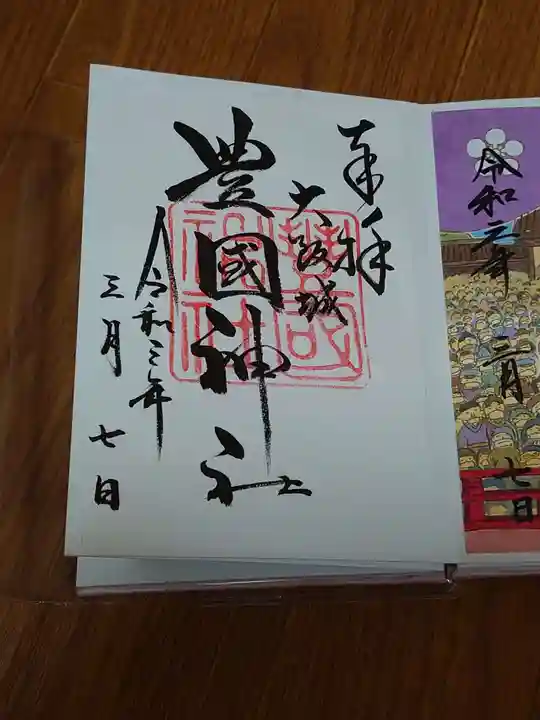 奉拝
大阪城
豊國神社
令和三年
三月
七日
令和
年
二月
七日